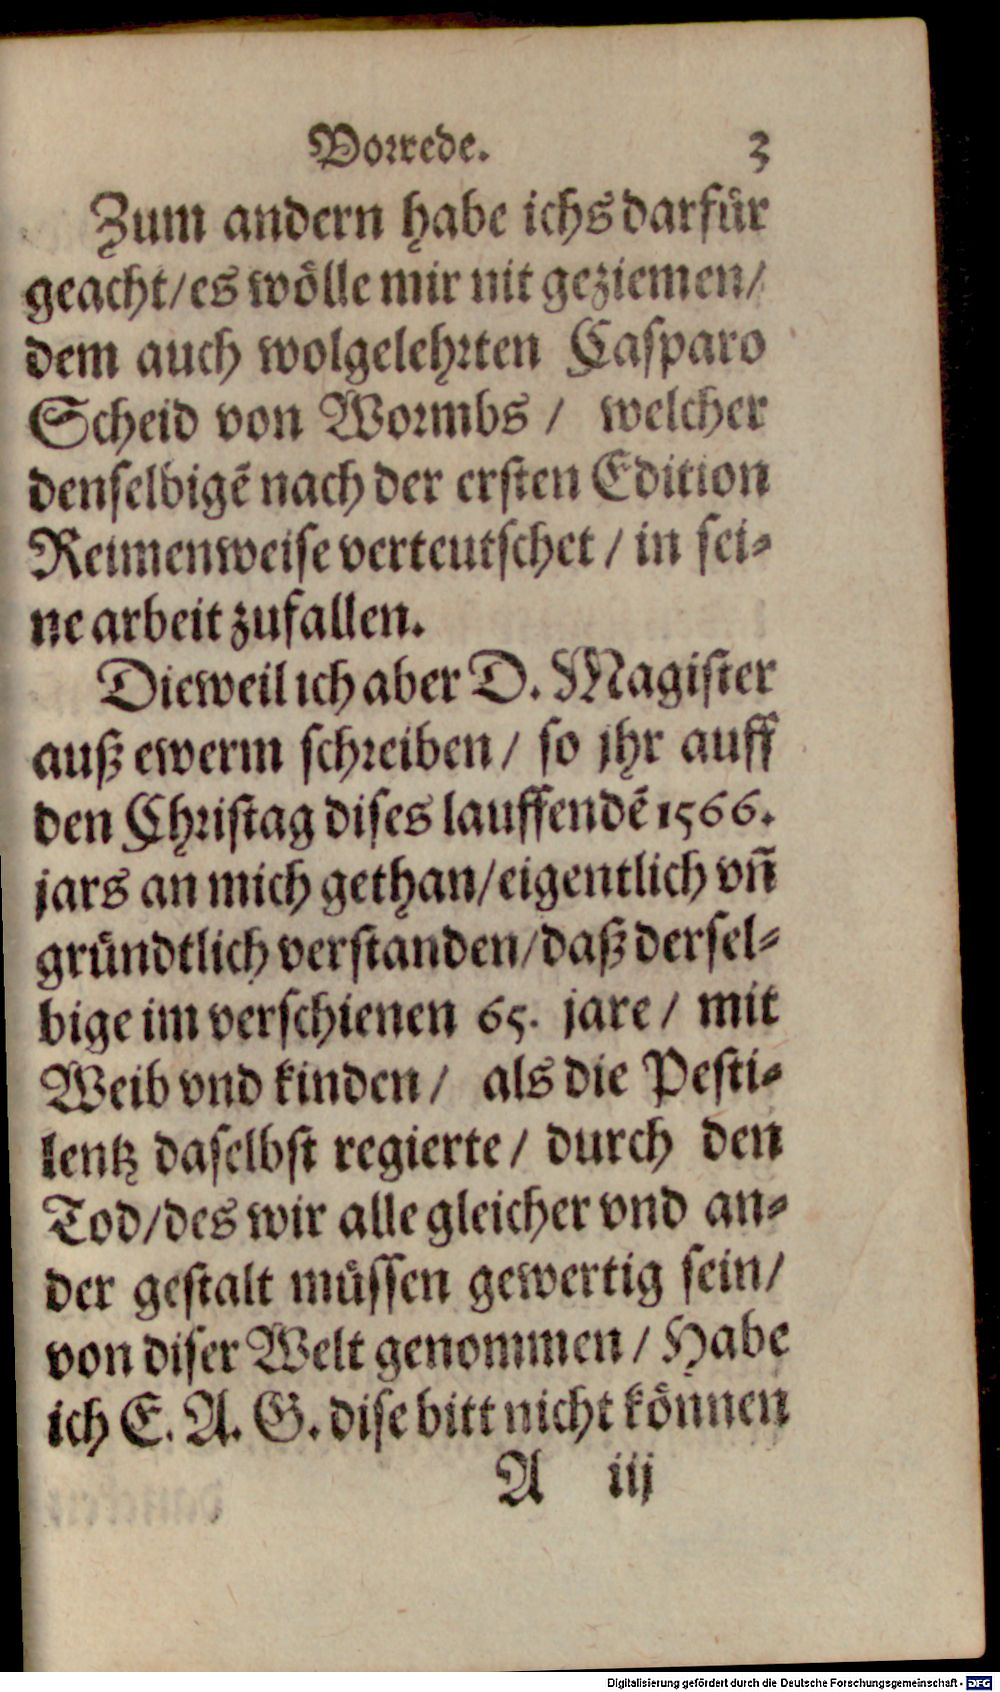 Vorrede. 3
Zum andern habe ichs darfür
geacht/es wölle mir nit geziemen/
dem auch wolgelehrten Casparo
Scheid von Wormbs / welcher
denselbigẽ nach der ersten Edition
Reimenweise verteutschet / in sei-
ne arbeit zufallen.
Dieweil ich aber D. Magister
auß ewerm schreiben / so jhr auff
den Christag dises lauffendẽ 1566.
jars an mich gethan/eigentlich vñ
gründtlich verstanden/daß dersel-
bige im verschienen 65. jare / mit
Weib vnd kinden / als die Pesti-
lentz daselbst regierte / durch den
Tod/des wir alle gleicher vnd an-
der gestalt müssen gewertig sein/
von diser Welt genommen / Habe
ich E. A. G. dise bitt nicht können
A iij
Digitalisierung gefördert durch die Deutsche Forschungsgemeinschaft - DFG